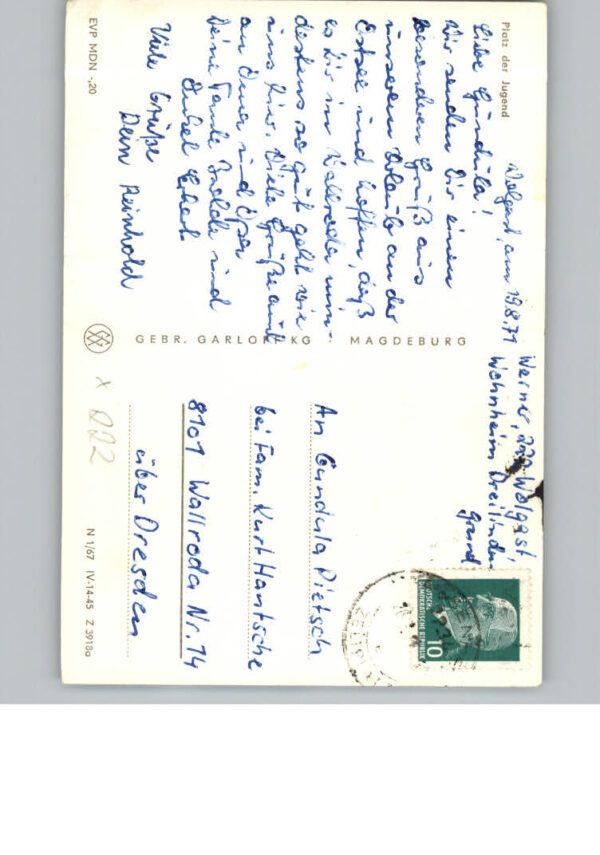 Platz der Jugend
Wolgast, am 19.8.71
Liebe Gundula!
Wir senden Dir einen
besonderen Gruß aus
unserem Urlaub an der
Ostsee und hoffen, daß
es Dir in Wallroda min-
destens so gut geht wie
uns hier. Viele Grüße auch
an Oma und Opa
Deine Tante Isolde und
Onkel Ehot
Viele Grüße
Dein Reinhold
EVP MDN -,20
GEBR. GARLOFF KG MAGDEBURG
Werner, 222 Wolgast
Wohnheim Dreilinden
Grund
DEUTSCHE
DEMOKRATISCHE REPUBLIK
10
An Gundula Pietsch
bei Fam. Kurt Hantsche
8101 Wallroda Nr. 14
über Dresden
N 1/67 IV-14-45 Z 3918a